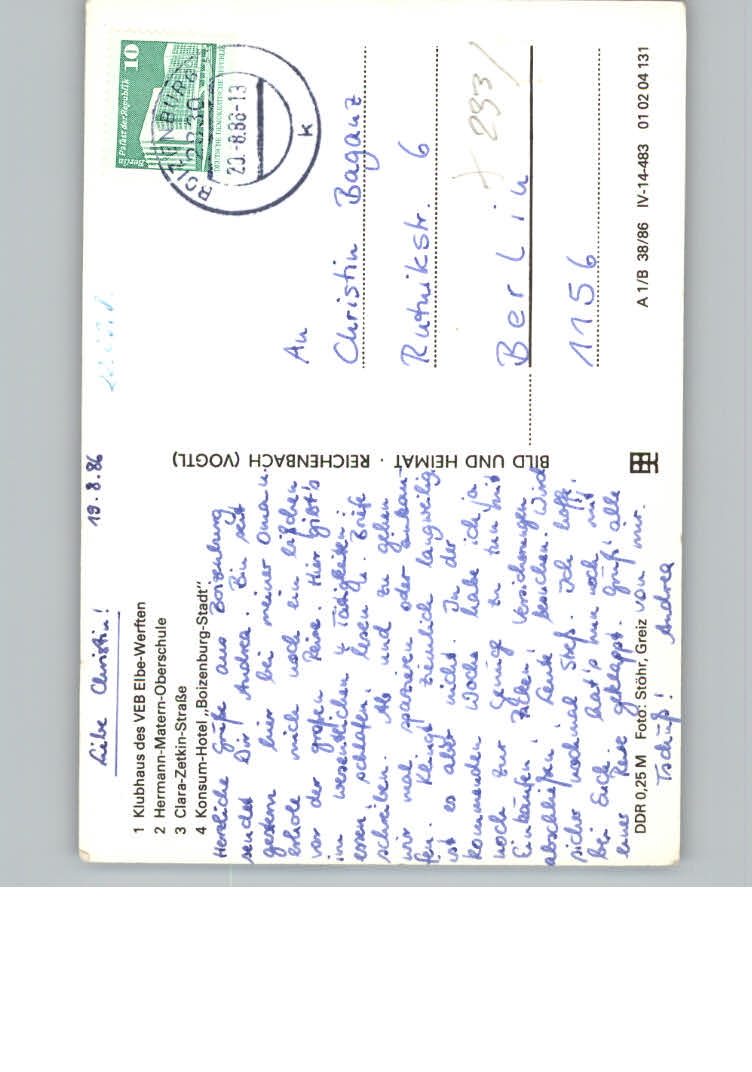 19.8.86
Liebe Christin!
1 Klubhaus des VEB Elbe-Werften
2 Hermann-Matern-Oberschule
3 Clara-Zetkin-Straße
4 Konsum-Hotel „Boizenburg-Stadt"
Herzliche Grüße aus Boizenburg
sendet Dir Andrea. Bin seit
gestern hier bei meiner Oma u.
erhole mich noch ein bißchen
vor der großen Reise. Hier gibt's
im wesentlichen 4 Tätigkeiten:
essen, schlafen, lesen u. Briefe
schreiben. Ab und zu gehen
wir mal spazieren oder einkau-
fen. Klingt ziemlich langweilig,
ist es aber nicht. In der
kommenden Woche habe ich ja
noch zur Genüge zu tun mit
Einkäufen, Packen, Versicherungen
abschließen, Leute besuchen. Wird
sicher nochmal Streß. Ich hoffe,
bei Euch hat's nun noch mit
einer Reise geklappt. Grüß' alle
von mir.
Tschüß! Andrea
DDR 0,25 M Foto: Stöhr, Greiz
BILD UND HEIMAT · REICHENBACH (VOGTL)
Berlin Palast der Republik
10
DEUTSCHE DEMOKRATISCHE REPUBLIK
BOIZENBURG
2830
20.-8.86-13
k
An
Christin Baganz
Rutnikstr. 6
293
Berlin
1156
A 1/B 38/86 IV-14-483 01 02 04 131